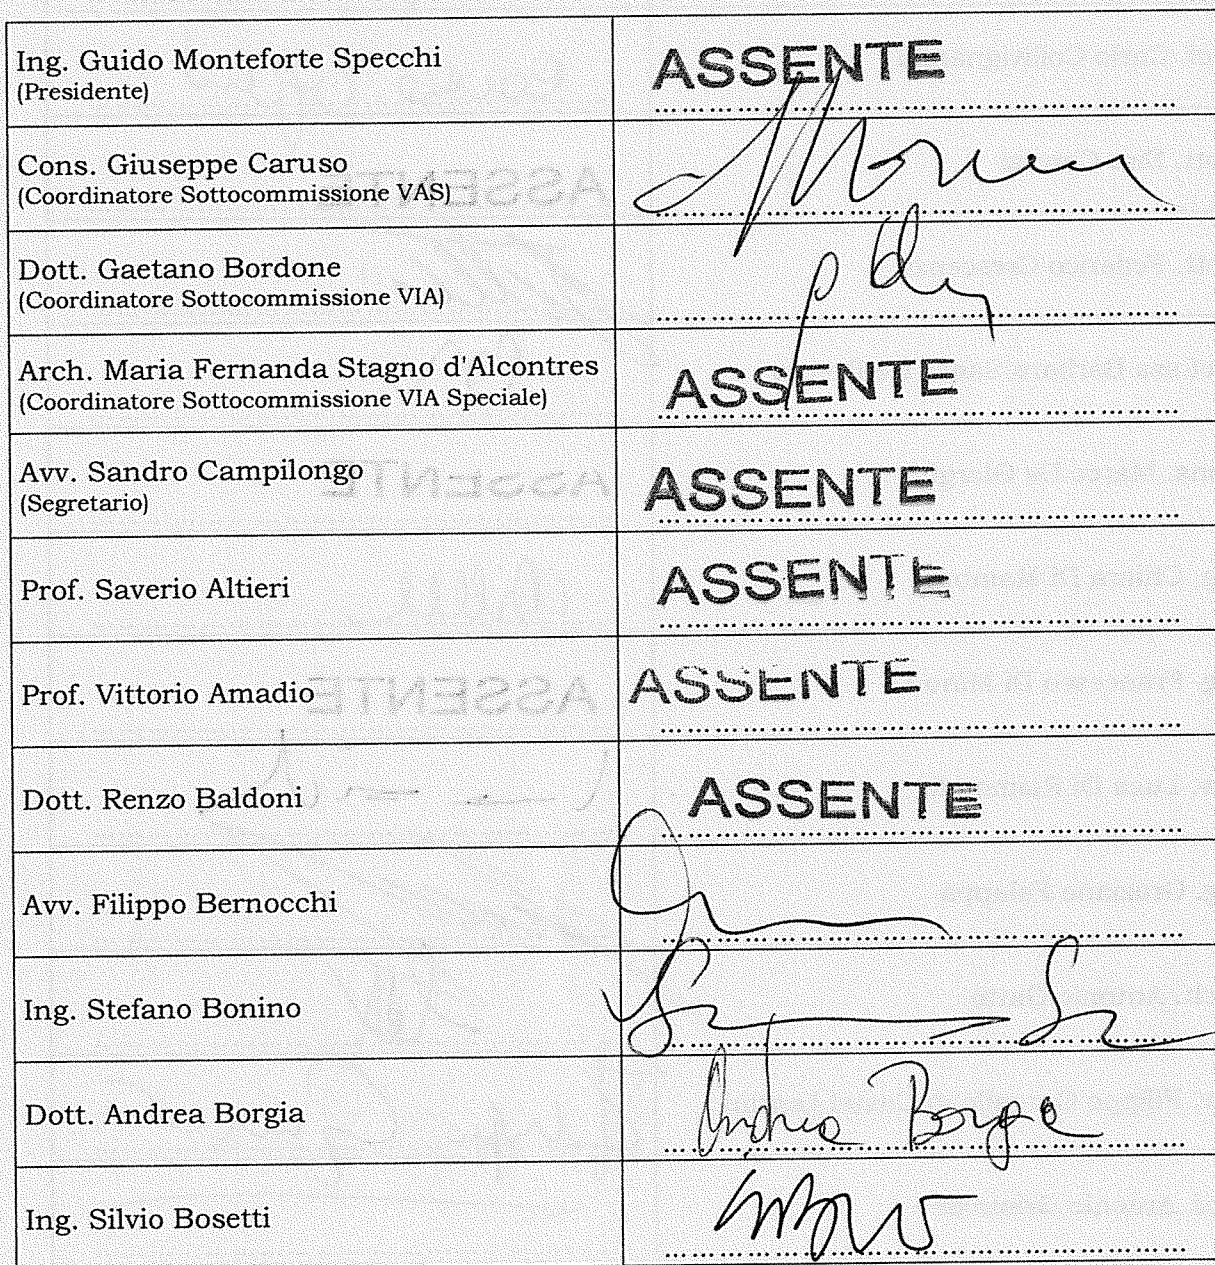 Ing. Guido Monteforte Specchi ASSENTE
(Presidente)
Cons. Giuseppe Caruso
(Coordinatore Sottocommissione VAS)
Dott. Gaetano Bordone
(Coordinatore Sottocommissione VIA)
Arch. Maria Fernanda Stagno d'Alcontres ASSENTE
(Coordinatore Sottocommissione VIA Speciale)
Avv. Sandro Campilongo ASSENTE
(Segretario)
Prof. Saverio Altieri ASSENTE
Prof. Vittorio Amadio ASSENTE
Dott. Renzo Baldoni ASSENTE
Avv. Filippo Bernocchi
Ing. Stefano Bonino
Dott. Andrea Borgia Andrea Borgia
Ing. Silvio Bosetti